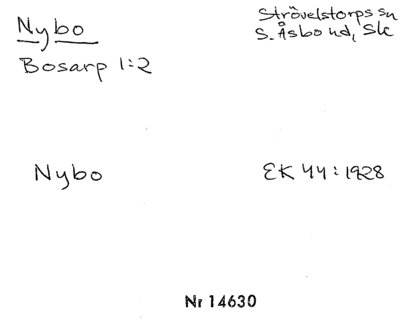 Nybo
Strövelstorps sn
S. Åsbo hd, Sk
Bosarp 1:2
Nybo
EK 44:1928
Nr 14630